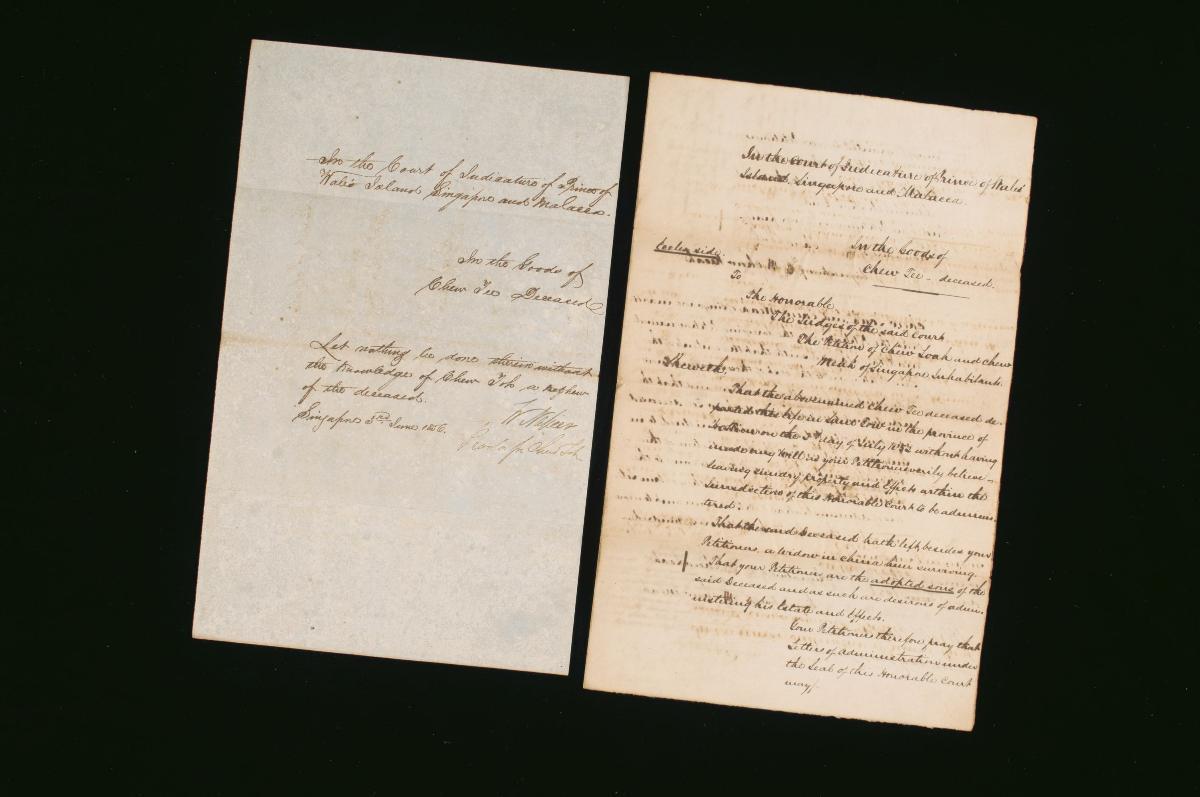 In the Court of Judicature of Prince of
Wales Island Singapore and Malacca.
In the Goods of
Chew Tee Deceased
Let nothing be done therein without
the Knowledge of Chew Toh a nephew
of the deceased.
Singapore 3rd June 1856.
Proctor for Chew Toh
In the Court of Judicature of Prince of Wales'
Island, Singapore and Malacca.
In the Goods of
Chew Tee - deceased.
To
The Honorable
The Judges of the said Court
The Petition of Chew Loah and Chew
of Singapore Inhabitants
Sheweth,
That the abovenamed Chew Tee deceased de-
parted this life in in the province of
on the day of July without having
made any Will as your Petitioners verily believe -
leaving sundry property and Effects within the
Jurisdiction of this Honorable Court to be adminis-
tered.
That the said Deceased hath left besides your
Petitioners, a widow in China him surviving.
That your Petitioners are the adopted sons of the
said Deceased and as such are desirous of admi-
nistering his Estate and Effects.
Your Petitioners therefore pray that
Letters of administration under
the Seal of this Honorable Court
may/